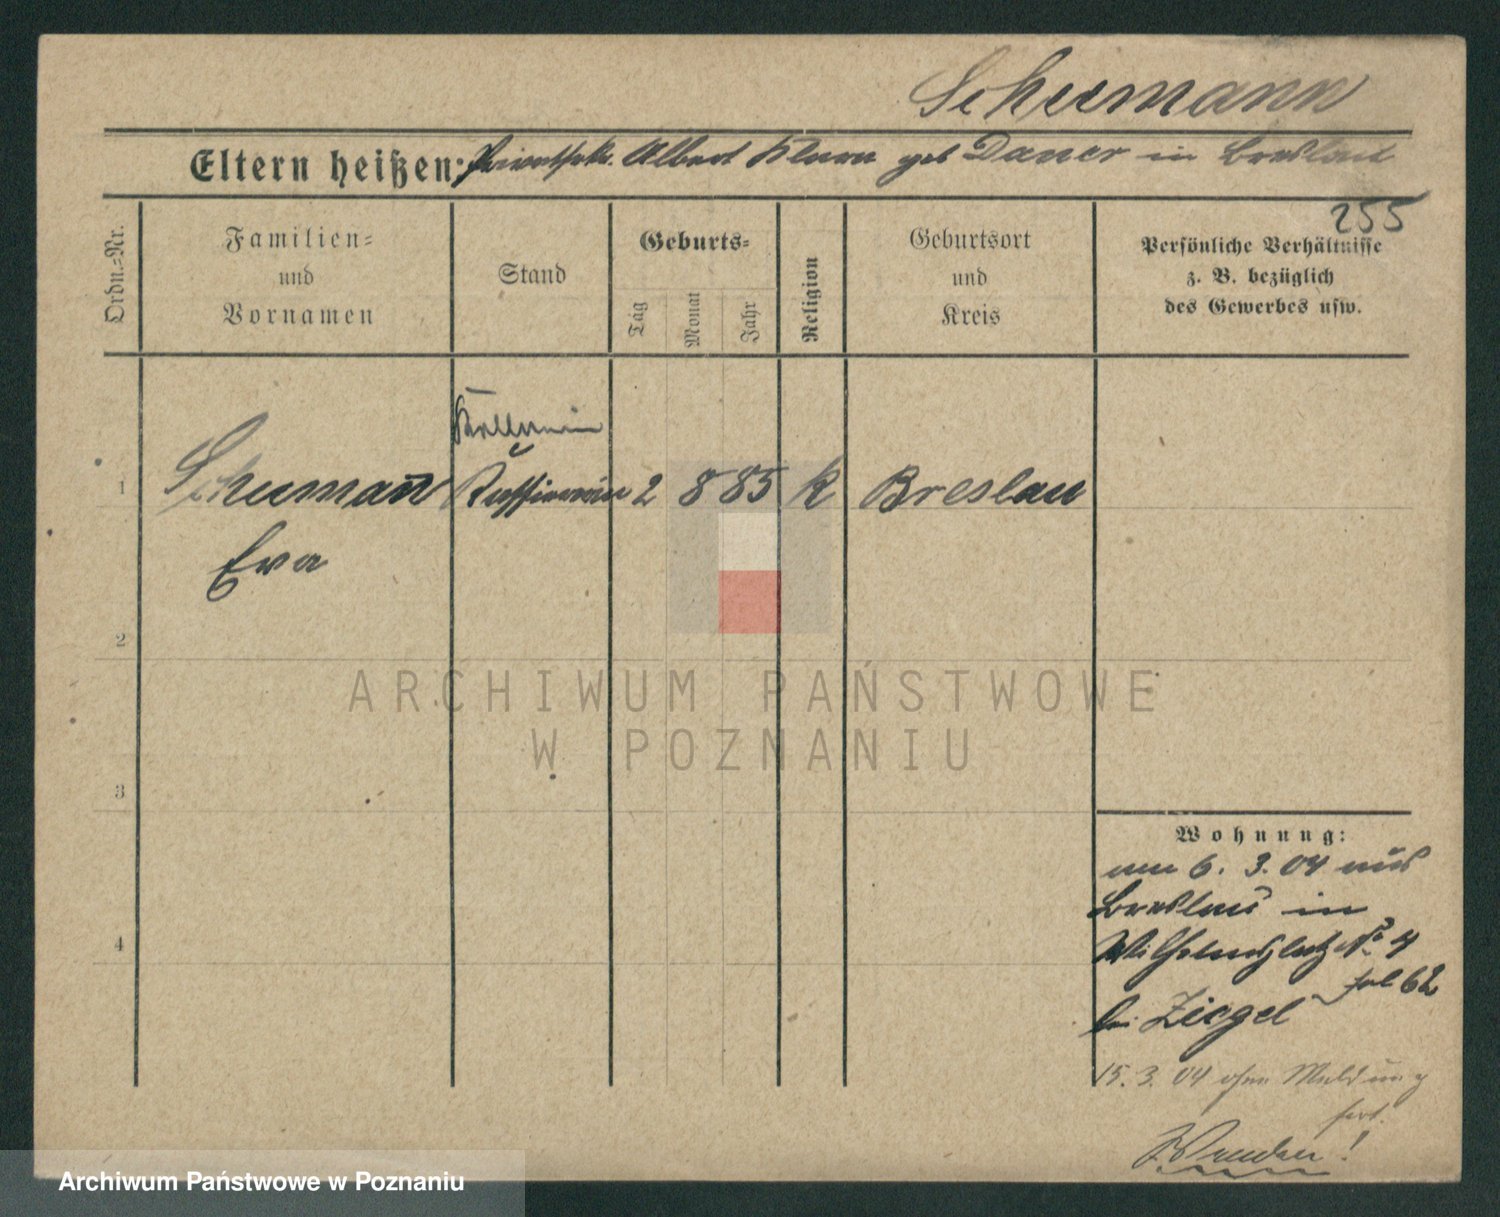 Schumann
Eltern heißen: Albert Klara geb Daner in Breslau
255
Ordn.-Nr.
Familien-
und
Vornamen
Stand
Geburts-
Tag
Monat
Jahr
Religion
Geburtsort
und
Kreis
Persönliche Verhältnisse
z. B. bezüglich
des Gewerbes usw.
Kellnerin
1 Schumann Kassiererin 2 8 85 k Breslau
Eva
2
3
4
ARCHIWUM PAŃSTWOWE
W POZNANIU
Wohnung:
am 6. 3. 04 aus
Breslau in
Wilhelmsplatz No 4
bei Ziegel
15. 3. 04 ohne Meldung
fort.
Wenden!
Archiwum Państwowe w Poznaniu